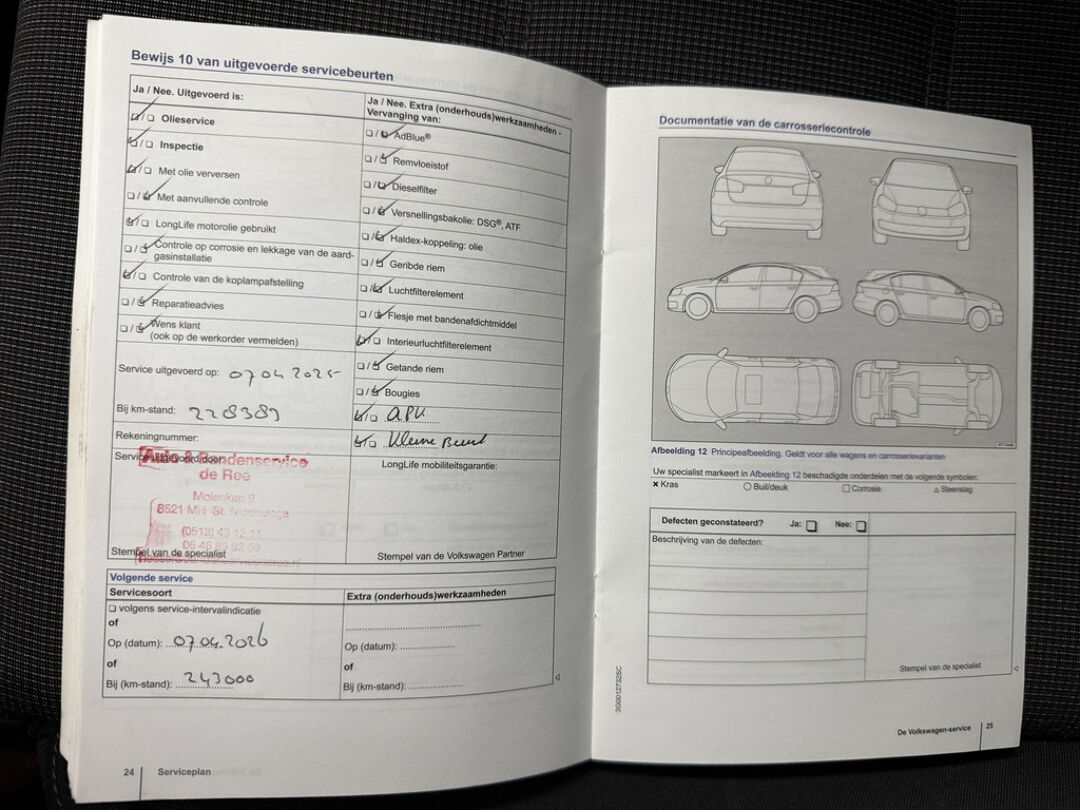 Bewijs 10 van uitgevoerde servicebeurten
Ja / Nee. Uitgevoerd is:
Olieservice
Inspectie
Met olie verversen
Met aanvullende controle
LongLife motorolie gebruikt
Controle op corrosie en lekkage van de aard-
gasinstallatie
Controle van de koplampafstelling
Reparatieadvies
Wens klant
(ook op de werkorder vermelden)
Service uitgevoerd op: 07 04 2025
Bij km-stand: 228389
Rekeningnummer:
Service uitgevoerd door:
Auto & Bandenservice
de Ree
Molenkap 9
8521 MH St. Nicolaasga
(0513) 43 12 11
Stempel van de specialist
Ja / Nee. Extra (onderhouds)werkzaamheden -
Vervanging van:
AdBlue®
Remvloeistof
Dieselfilter
Versnellingsbakolie: DSG®, ATF
Haldex-koppeling: olie
Geribde riem
Luchtfilterelement
Flesje met bandenafdichtmiddel
Interieurluchtfilterelement
Getande riem
Bougies
APK
Kleine Beurt
LongLife mobiliteitsgarantie:
Stempel van de Volkswagen Partner
Volgende service
Servicesoort
volgens service-intervalindicatie
of
Op (datum): 07.04.2026
of
Bij (km-stand): 243000
Extra (onderhouds)werkzaamheden
Op (datum):
of
Bij (km-stand):
24 Serviceplan
Documentatie van de carrosseriecontrole
Afbeelding 12 Principeafbeelding. Geldt voor alle wagens en carrosserievarianten
Uw specialist markeert in Afbeelding 12 beschadigde onderdelen met de volgende symbolen:
Kras Buil/deuk Corrosie Steenslag
Defecten geconstateerd? Ja: Nee:
Beschrijving van de defecten:
Stempel van de specialist
3G0012732SC
De Volkswagen-service 25